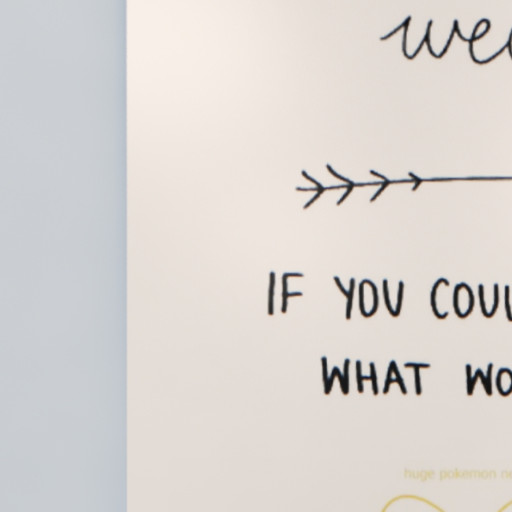 we
IF YOU COU
WHAT WO
huge pokemon ne